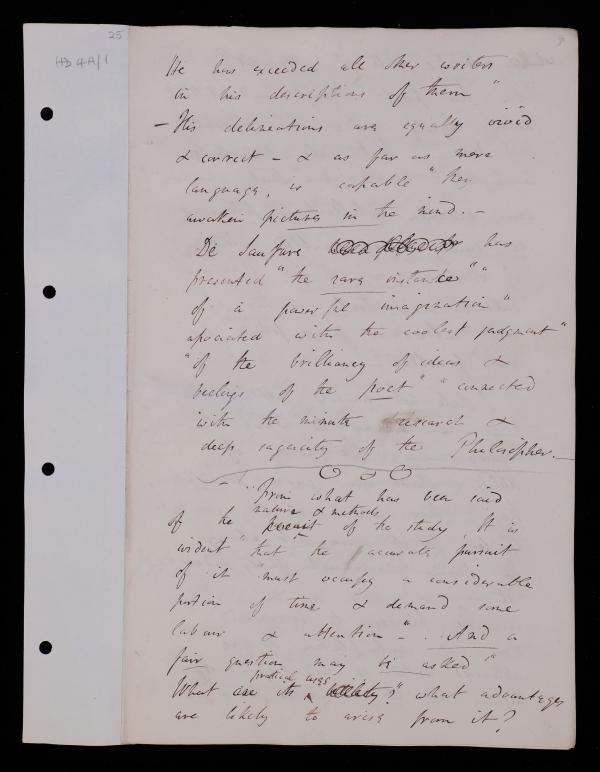 25
HD 4A/1
He has exceeded all other writers
in his descriptions of them "
- His delineations are equally "vivid
& correct - & as far as mere
language, is capable " they
awaken pictures in the mind. -
De Saussure has
presented "the rare instance" "
of a powerful imagination "
associated with the coolest judgment "
"of the brilliancy of ideas &
feelings of the poet" " connected
with the minute research &
deep sagacity of the Philosopher. -
- " From what has been said
nature & methods
of the of the study, It is
evident "that the accurate pursuit
of it must occupy a considerable
portion of time & demand some
labour & attention - " .. And a
fair question may be asked "
practical uses
What are its ?" what advantages
are likely to arise from it?